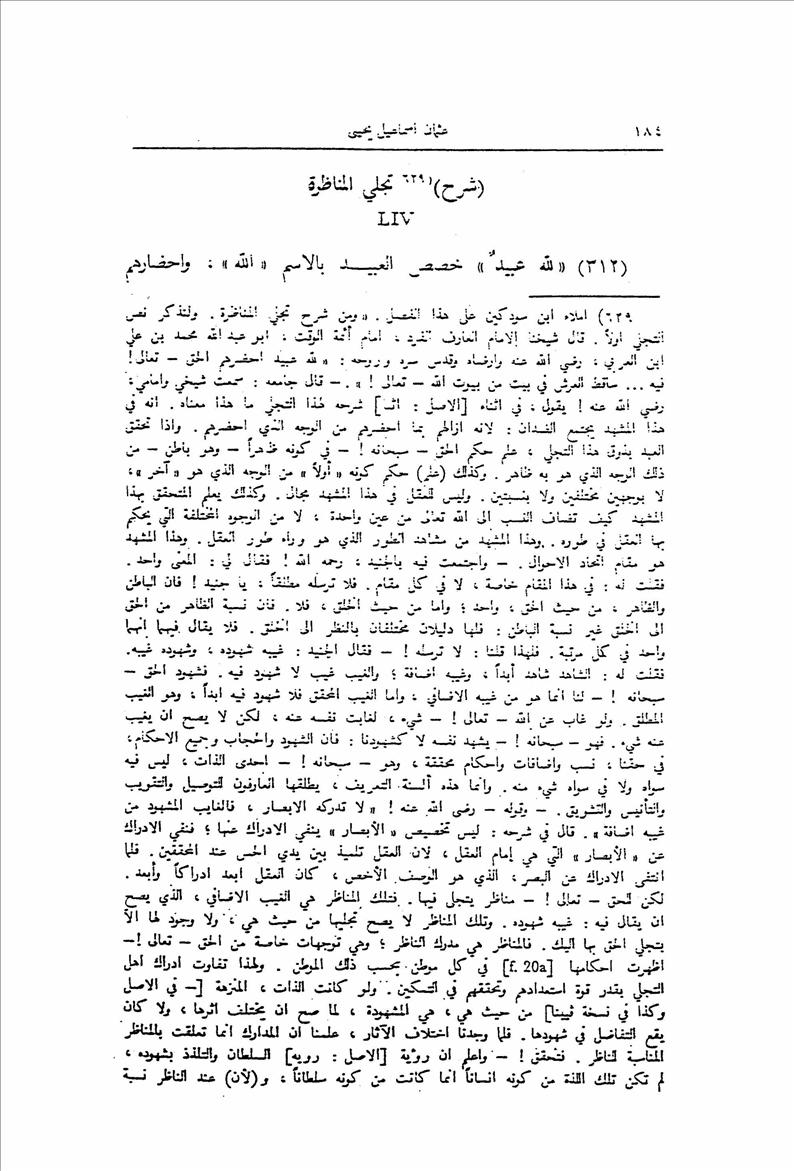 ١٨٤
عثمان اسماعيل يحيى
(شرح)⁶²⁹ تجلي المناظرة
LIV
(٣١٢) «لله عبيدٌ» خصص العبيد بالاسم «الله» ؛ واحضارهم
٦٢٩) املاء ابن سودكين على هذا الفصل . «ومن شرح تجلي المناظرة . ولنذكر نص
التجلي اولاً . قال شيخنا الامام العارف الفرد ، امام أئمة الوقت ، ابو عبد الله محمد بن علي
ابن العربي ، رضي الله عنه وارضاه وقدس سره وروحه : «لله عبيد احضرهم الحق – تعالى !
فيه ... ساقط العرش في بيت من بيوت الله – تعالى ! » . – قال جامعه : سمعت شيخي وامامي ،
رضي الله عنه ! يقول ، في اثناء [الاصل : اثـ] شرحه لهذا التجلي ما هذا معناه . انه في
هذا المشهد يجتمع الضدان : لانه ازالهم بما احضرهم من الوجه الذي احضرهم . واذا تحقق
العبد بذوق هذا التجلي ، علم حكم الحق – سبحانه ! – في كونه ظهراً – وهو باطن – من
ذلك الوجه الذي هو به ظاهر . وكذلك (علم) حكم كونه «أولاً» من الوجه الذي هو «آخر» ،
لا بوجهين مختلفين ولا بنسبتين . وليس للعقل في هذا المشهد مجال . وكذلك يعلم المتحقق بهذا
المشهد كيف تضاف النسب الى الله تعالى من عين واحدة ، لا من الوجوه المختلفة التي يحكم
بها العقل في طوره . وهذا المشهد من مشاهد الطور الذي هو وراء طور العقل . وهذا المشهد
هو مقام اتحاد الاحوال . – واجتمعت فيه بالجنيد ، رحمه الله ! فقال لي : المعنى واحد .
فقلت له : في هذا المقام خاصة ، لا في كل مقام . فلا ترسله مطلقاً ، يا جنيد ! فان الباطن
والظاهر ، من حيث الحق ، واحد ؛ واما من حيث الخلق ، فلا . فان نسبة الظاهر من الحق
الى الخلق غير نسبة الباطن : فلها دليلان مختلفان بالنظر الى الخلق . فلا يقال فيهما انهما
واحد في كل مرتبة . فلهذا قلنا : لا ترسله ! – فقال الجنيد : غيبه شهوده ، وشهوده غيبه .
فقلت له : الشاهد شاهد أبداً ، وغيبه اضافة ؛ والغيب غيب لا شهود فيه . فشهود الحق –
سبحانه ! – لنا انما هو من غيبه الاضافي ، واما الغيب المحقق فلا شهود فيه ابداً ، وهو الغيب
المطلق . ولو غاب عن الله – تعالى ! – شيء ، لغابت نفسه عنه ، لكن لا يصح ان يغيب
عنه شيء . فهو – سبحانه ! – يشهد نفسه لا كشهودنا : فان الشهود والحجاب وجميع الاحكام ،
في حقنا ، نسب واضافات واحكام محققة ، وهو – سبحانه ! – احدى الذات ، ليس فيه
سواه ولا في سواه شيء منه . وانما هذه ألسنة التعريف ، يطلقها العارفون للتوصيل والتقريب
والتأنيس والتشريق . – وقوله – رضي الله عنه ! «لا تدركه الابصار ، فالغايب المشهود من
غيبه اضافة» . قال في شرحه : ليس تخصيص «الأبصار» ينفي الادراك عنها ؛ فنفي الادراك
عن «الأبصار» التي هي إمام العقل ، لان العقل تلميذ بين يدي الحس عند المحققين . فلما
انتفى الادراك عن البصر ، الذي هو الوصف الأخص ، كان العقل ابعد ادراكاً وأبعد .
لكن للحق – تعالى ! – مناظر يتجلى فيها . فتلك المناظر هي الغيب الاضافي ، الذي يصح
ان يقال فيه : غيبه شهوده . وتلك المناظر لا يصح تجليها من حيث هي ، ولا وجود لها الا
يتجلي الحق بها اليك . فالمناظر هي مدرك الناظر ؛ وهي توجهات خاصة من الحق – تعالى ! –
اظهرت احكامها [f. 20a] في كل موطن بحسب ذلك الموطن . ولهذا تفاوت ادراك اهل
التجلي بقدر قوة استعدادهم وتحققهم في التمكين . ولو كانت الذات ، المنزهة [– في الاصل
وكذا في نسخة فيينا] من حيث هي ، هي المشهودة ، لما صح ان يختلف اثرها ، ولا كان
يقع التفاضل في شهودها . فلما وجدنا اختلاف الآثار ، علمنا ان المدارك انما تعلقت بالمناظر
المناسبة للناظر . فتحقق ! – واعلم ان رؤية [الاصل : رويه] السلطان والتلذذ بشهوده ،
لم تكن تلك اللذة من كونه انساناً انما كانت من كونه سلطاناً ، و(لأن) عند الناظر نسبة